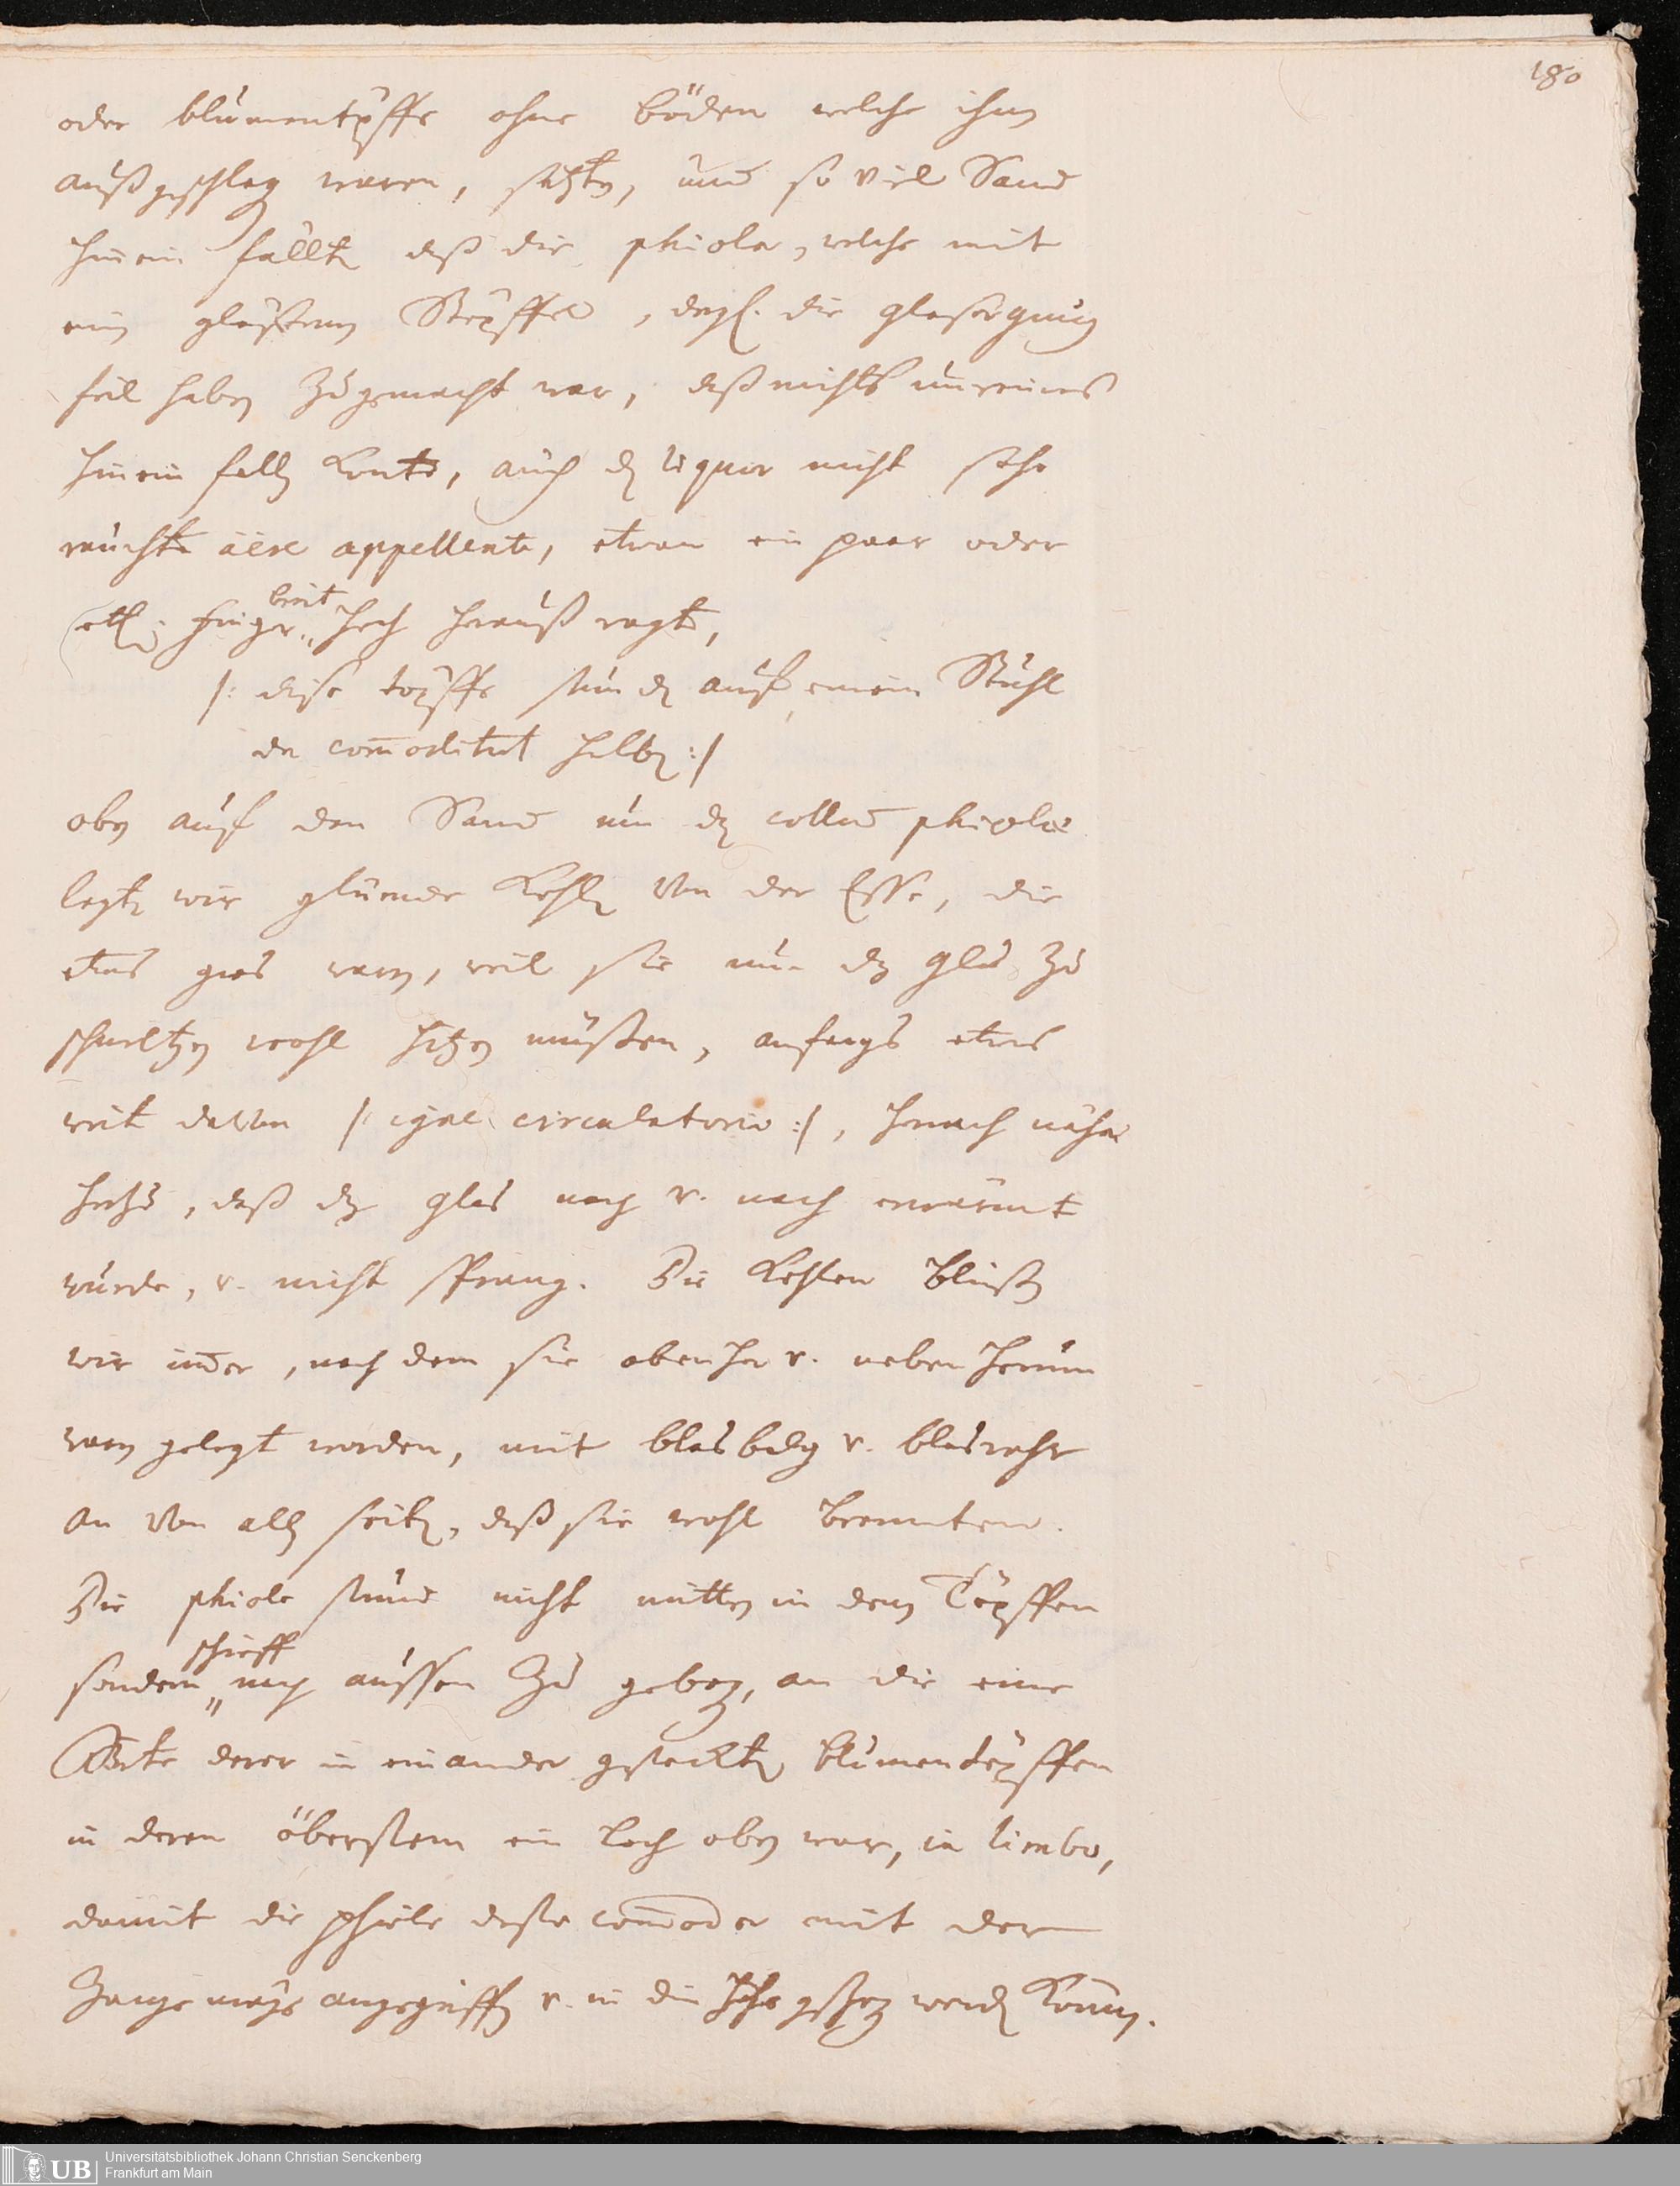 180
oder blumentöpffe ohne böden welche ihm
außgeschlag waren, setzten, und so viel Sand
hinein füllte daß die phiola, welche mit
ein gläßernen Stöpffel, dergl. die
feil haben zugemacht war, daß nichts unreines
hinein fallen konte, auch der liquor nicht sehr
rauchte aëre appellente, etwan ein paar oder
etl. finger breit hoch herauß ragte,
/: diese töpffe stunden auf einem Stuhl
der commoditaet halber :/
oben auf den Sand um das collum phiolae
legten wir glüende Kohlen von der Esse, die
etwas gros waren, weil sie um das glas zu
schmeltzen wohl hitzen müßen, anfangs etwas
weit davon /: igne circulatorio :/, hernach näher
herzu, daß das glas nach u. nach erwärmt
würde, u. nicht sprang. Die Kohlen bließen
wir immer, nach dem sie obenher u. neben herum
waren gelegt worden, mit blasbalg u. blasrohr
an von allen seiten, daß sie wohl brennten.
Die phiole stund nicht mitten in denen Töpffen
sondern schieff nach aussen zu gebogen, an die eine
Seite derer in einander gesteckten blumentöpffen
in deren öberstem ein loch oben war, in limbo,
damit die phiole desto commoder mit der
Zange möge angegriffen u. in die Höhe gezogen werden können.
Universitätsbibliothek Johann Christian Senckenberg
Frankfurt am Main
UB